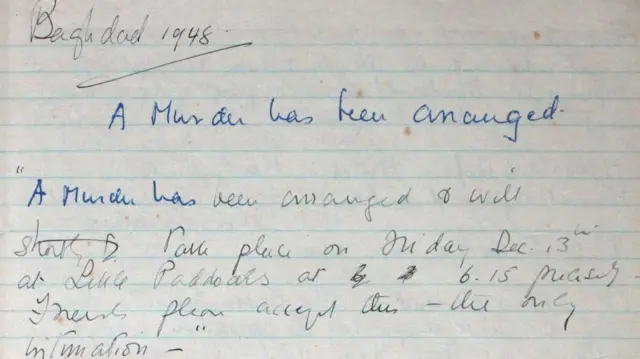 Baghdad 1948.
A Murder has been arranged.
"A Murder has been arranged & will"
shortly take place on Friday Dec. 13th
at Little Paddocks at 6.15 precisely.
Friends please accept this – the only
intimation – "